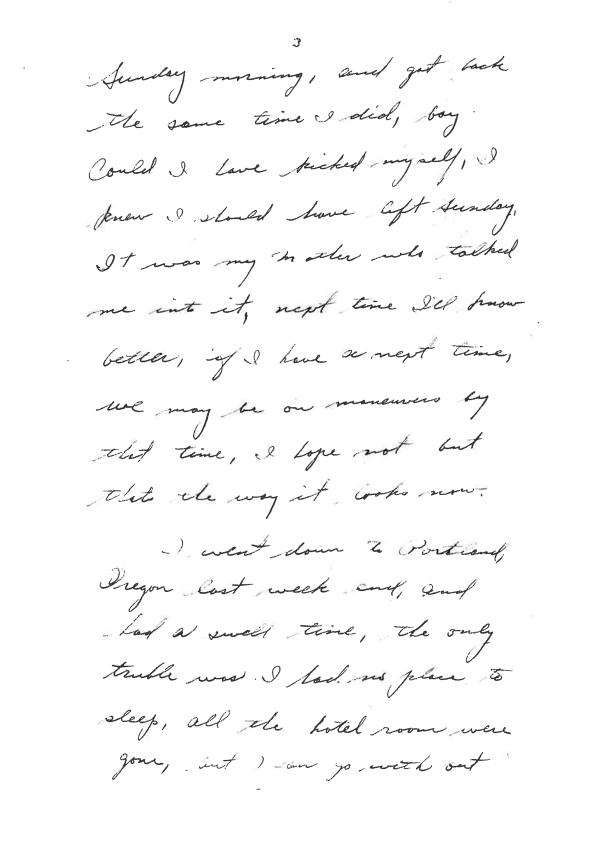 3
Sunday morning, and got back
the same time I did, boy
Could I have kicked myself, I
knew I should have left Sunday,
It was my Mother who talked
me into it, next time I'll know
better, if I have a next time,
we may be on maneuvers by
that time, I hope not but
thats the way it looks now.
I went down to Portland,
Oregon last week end, and
had a swell time, the only
truble was I had no place to
sleep, all the hotel room were
gone, but I can go with out